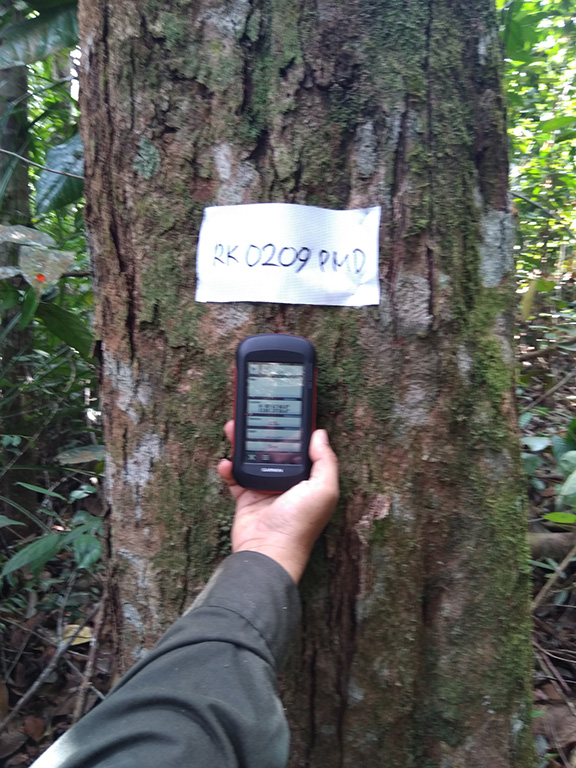 RK 0209 PMD
GARMIN